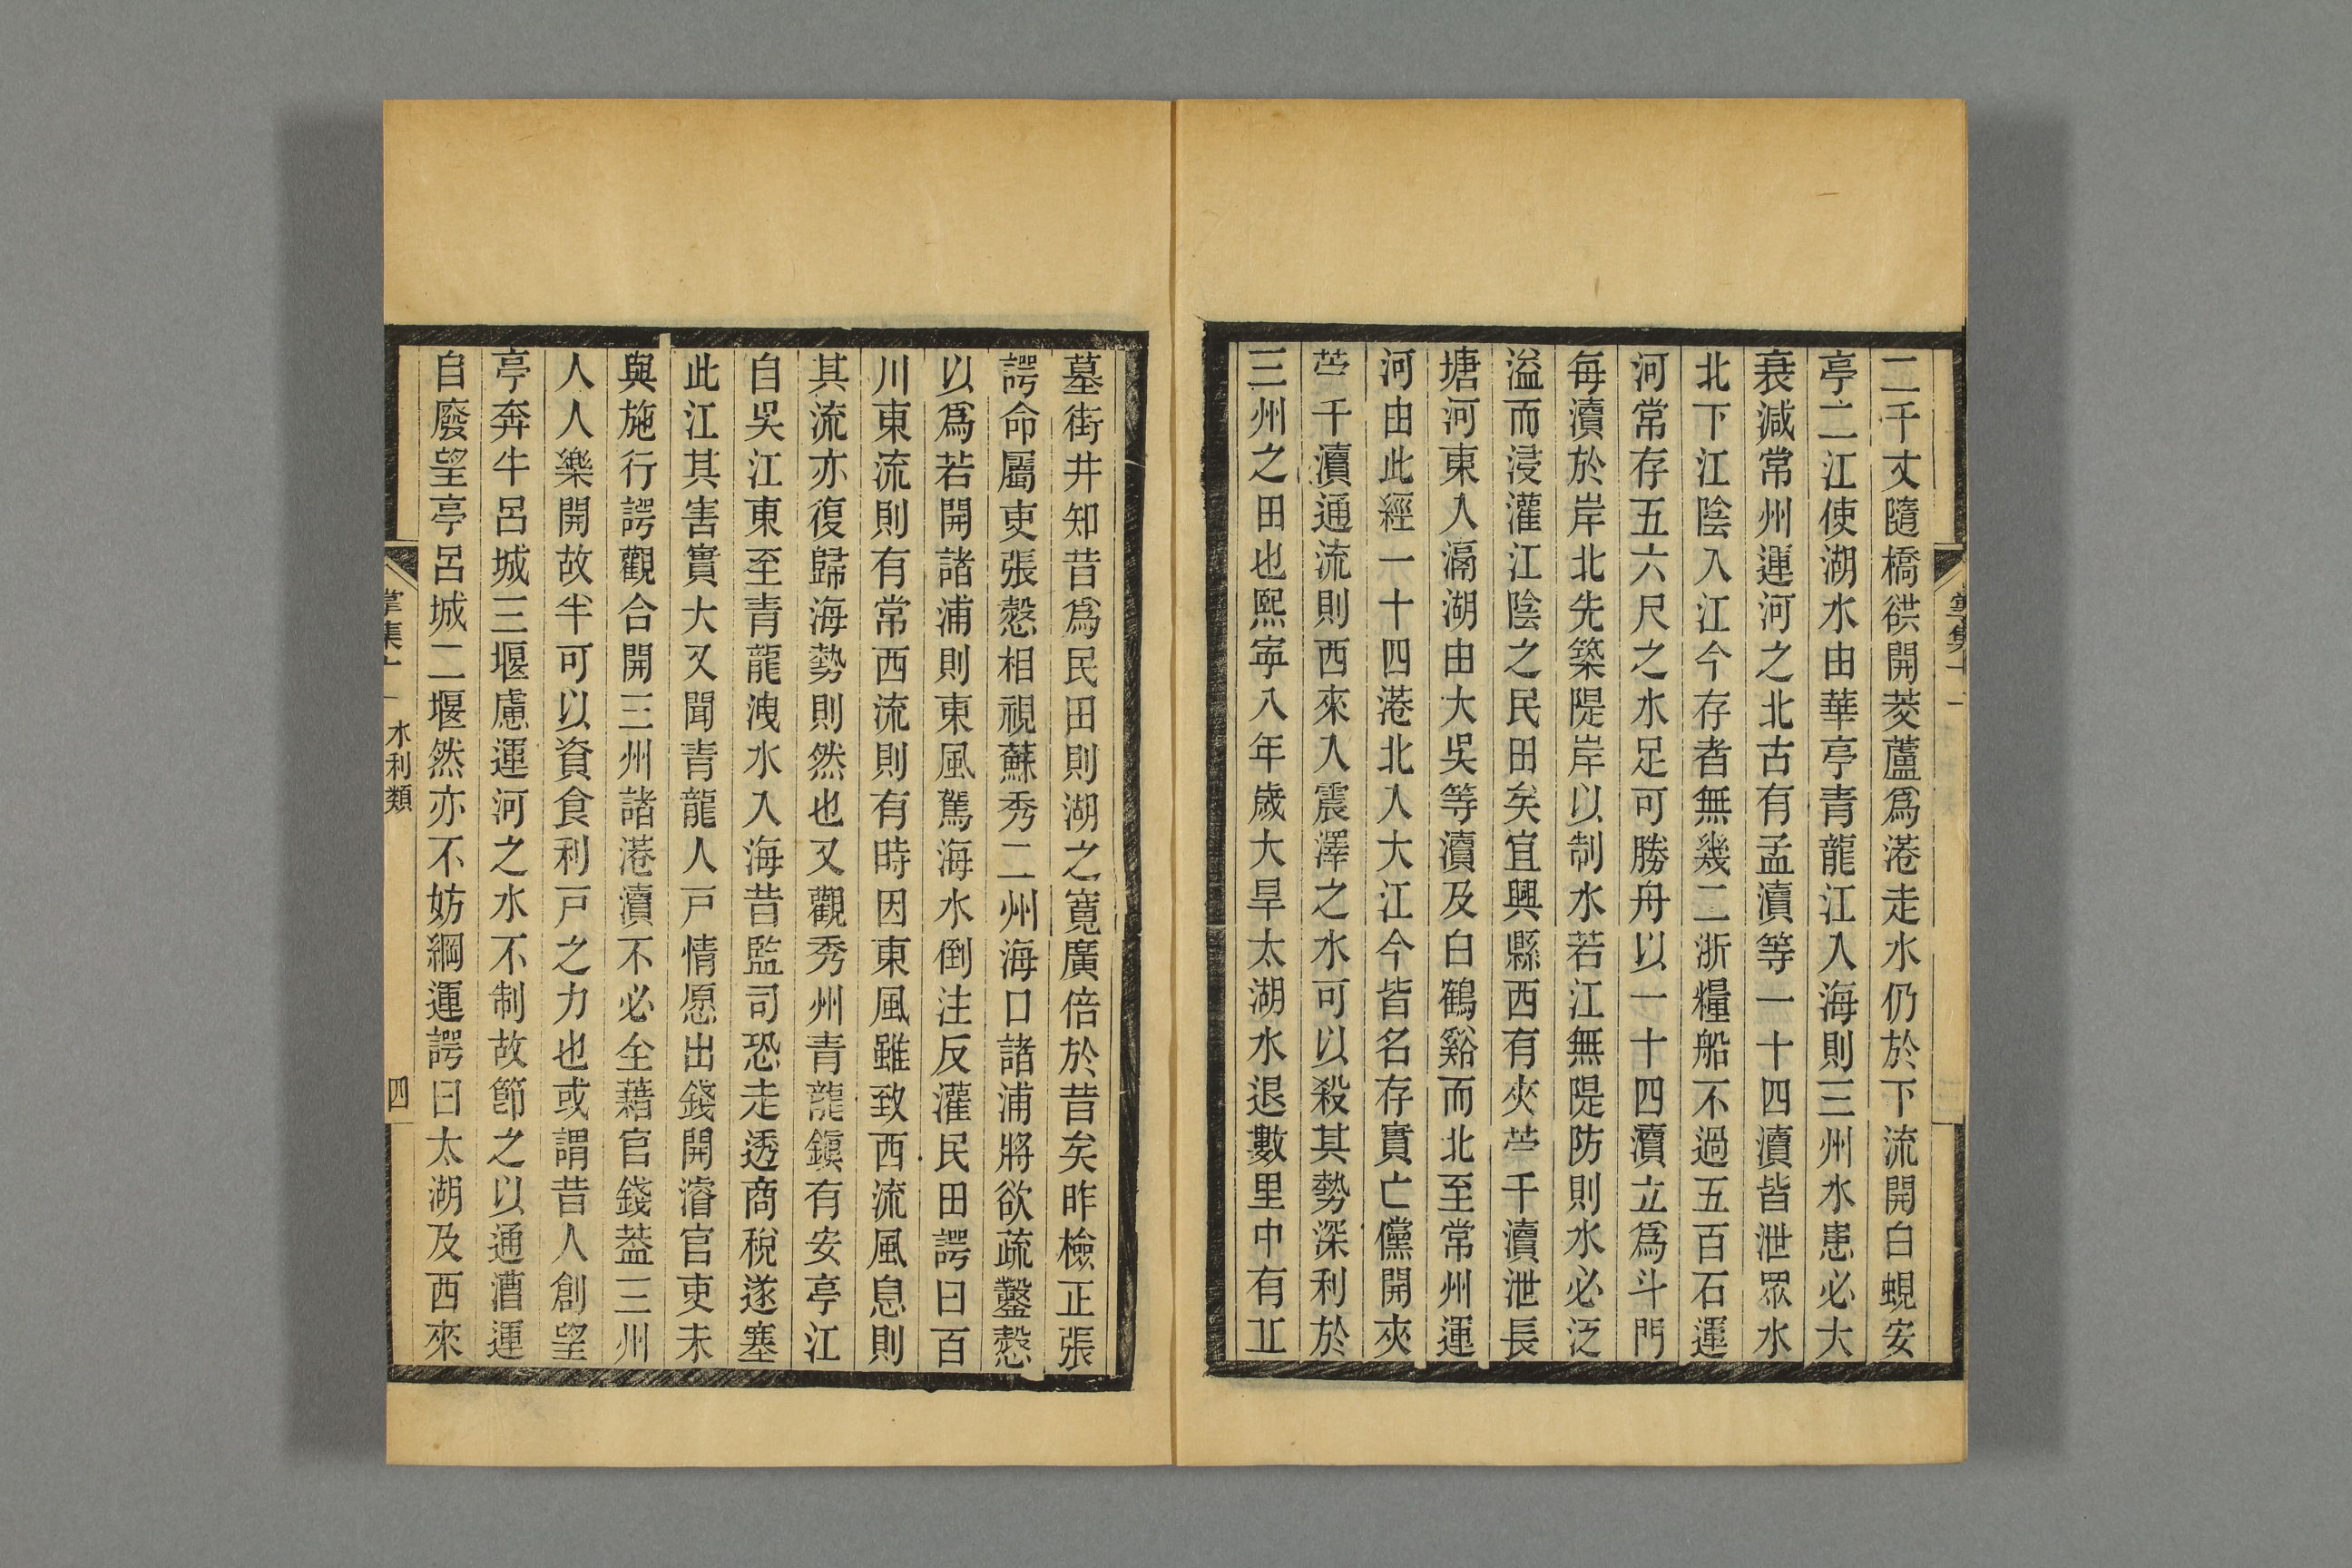 二千丈隨橋谼開茭蘆爲港走水仍於下流開白蜆安
亭二江使湖水由華亭青龍江入海則三州水患必大
衰減常州運河之北古有孟瀆等一十四瀆皆泄眾水
北下江陰入江今存者無幾二浙糧船不過五百石運
河常存五六尺之水足可勝舟以一十四瀆立爲斗門
每瀆於岸北先築隄岸以制水若江無隄防則水必泛
溢而浸灌江陰之民田矣宜興縣西有夾苧千瀆泄長
塘河東入滆湖由大吳等瀆及白鶴谿而北至常州運
河由此經一十四港北入大江今皆名存實亡儻開夾
苧千瀆通流則西來入震澤之水可以殺其勢深利於
三州之田也熙寧八年歲大旱太湖水退數里中有丘
墓街井知昔爲民田則湖之寬廣倍於昔矣昨檢正張
諤命屬吏張慤相視蘇秀二州海口諸浦將欲疏鑿慤
以爲若開諸浦則東風駕海水倒注反灌民田諤曰百
川東流則有常西流則有時因東風雖致西流風息則
其流亦復歸海勢則然也又觀秀州青龍鎭有安亭江
自吳江東至青龍洩水入海昔監司恐走透商稅遂塞
此江其害實大又聞青龍人戸情愿出錢開濬官吏未
與施行諤觀合開三州諸港瀆不必全藉官錢葢三州
人人樂開故半可以資食利戸之力也或謂昔人創望
亭奔牛呂城三堰慮運河之水不制故節之以通漕運
自廢望亭呂城二堰然亦不妨綱運諤曰太湖及西來
水利類
四